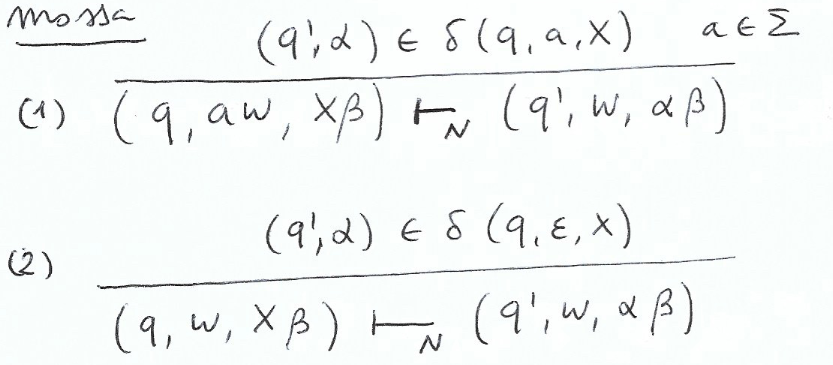 mossa
(q',α) ∈ δ(q,a,X) a ∈ Σ
(1) (q, aw, Xβ) ⊢N (q', w, αβ)
(q',α) ∈ δ(q,ε,X)
(2)
(q, w, Xβ) ⊢N (q', w, αβ)